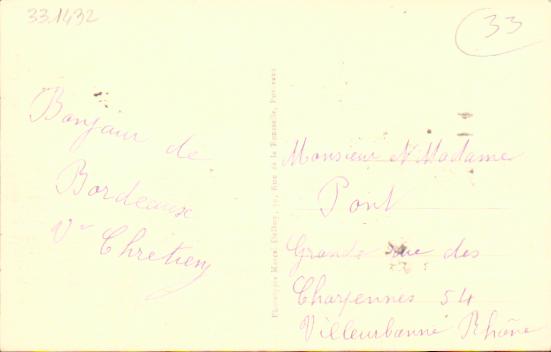 331432
33
Bonjour de
Bordeaux
Vve Chretien
Phototypie Marcel Delboy, Rue de la
Monsieur et Madame
Pont
Grande rue des
Charpennes 54
Villeurbanne Rhône